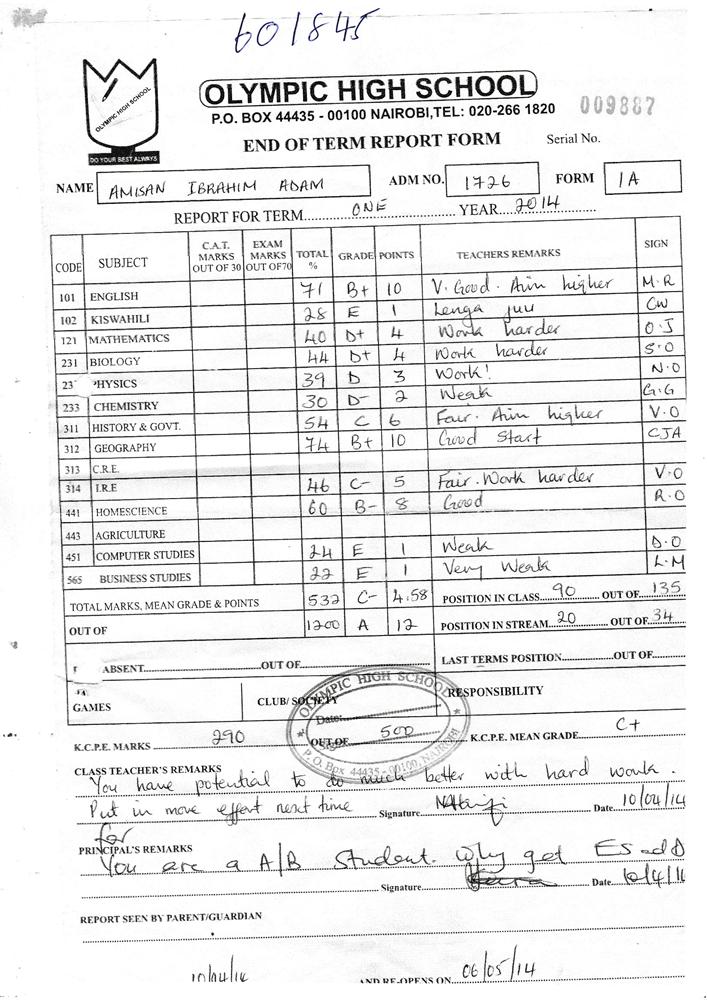 601845
OLYMPIC HIGH SCHOOL
DO YOUR BEST ALWAYS
OLYMPIC HIGH SCHOOL
P.O. BOX 44435 - 00100 NAIROBI, TEL: 020-266 1820
009887
END OF TERM REPORT FORM Serial No.
NAME AMISAN IBRAHIM ADAM ADM NO. 1726 FORM 1A
REPORT FOR TERM ONE YEAR 2014
CODE SUBJECT C.A.T. MARKS OUT OF 30 EXAM MARKS OUT OF 70 TOTAL % GRADE POINTS TEACHERS REMARKS SIGN
101 ENGLISH 71 B+ 10 V. Good. Aim higher M.R
102 KISWAHILI 28 E 1 Lenga juu CW
121 MATHEMATICS 40 D+ 4 Work harder O.J
231 BIOLOGY 44 D+ 4 Work harder S.O
23 PHYSICS 39 D 3 Work! N.O
233 CHEMISTRY 30 D- 2 Weak G.G
311 HISTORY & GOVT. 54 C 6 Fair. Aim higher V.O
312 GEOGRAPHY 74 B+ 10 Good start CJA
313 C.R.E.
314 I.R.E 46 C- 5 Fair. Work harder V.O
441 HOMESCIENCE 60 B- 8 Good R.O
443 AGRICULTURE
451 COMPUTER STUDIES 24 E 1 Weak D.O
565 BUSINESS STUDIES 22 E 1 Very Weak L.M
TOTAL MARKS, MEAN GRADE & POINTS 532 C- 4.58 POSITION IN CLASS 90 OUT OF 135
OUT OF 1200 A 12 POSITION IN STREAM 20 OUT OF 34
ABSENT OUT OF LAST TERMS POSITION OUT OF
GAMES CLUB/ SOCIETY RESPONSIBILITY
OLYMPIC HIGH SCHOOL
Date:
P.O. Box 44435 - 00100, NAIROBI
K.C.P.E. MARKS 290 OUT OF 500 K.C.P.E. MEAN GRADE C+
CLASS TEACHER'S REMARKS
You have potential to do much better with hard work.
Put in more effort next time Signature Date 10/04/14
for
PRINCIPAL'S REMARKS
You are a A/B student. Why get Es and D
Signature Date
REPORT SEEN BY PARENT/GUARDIAN
10/04/14 AND RE-OPENS ON 06/05/14